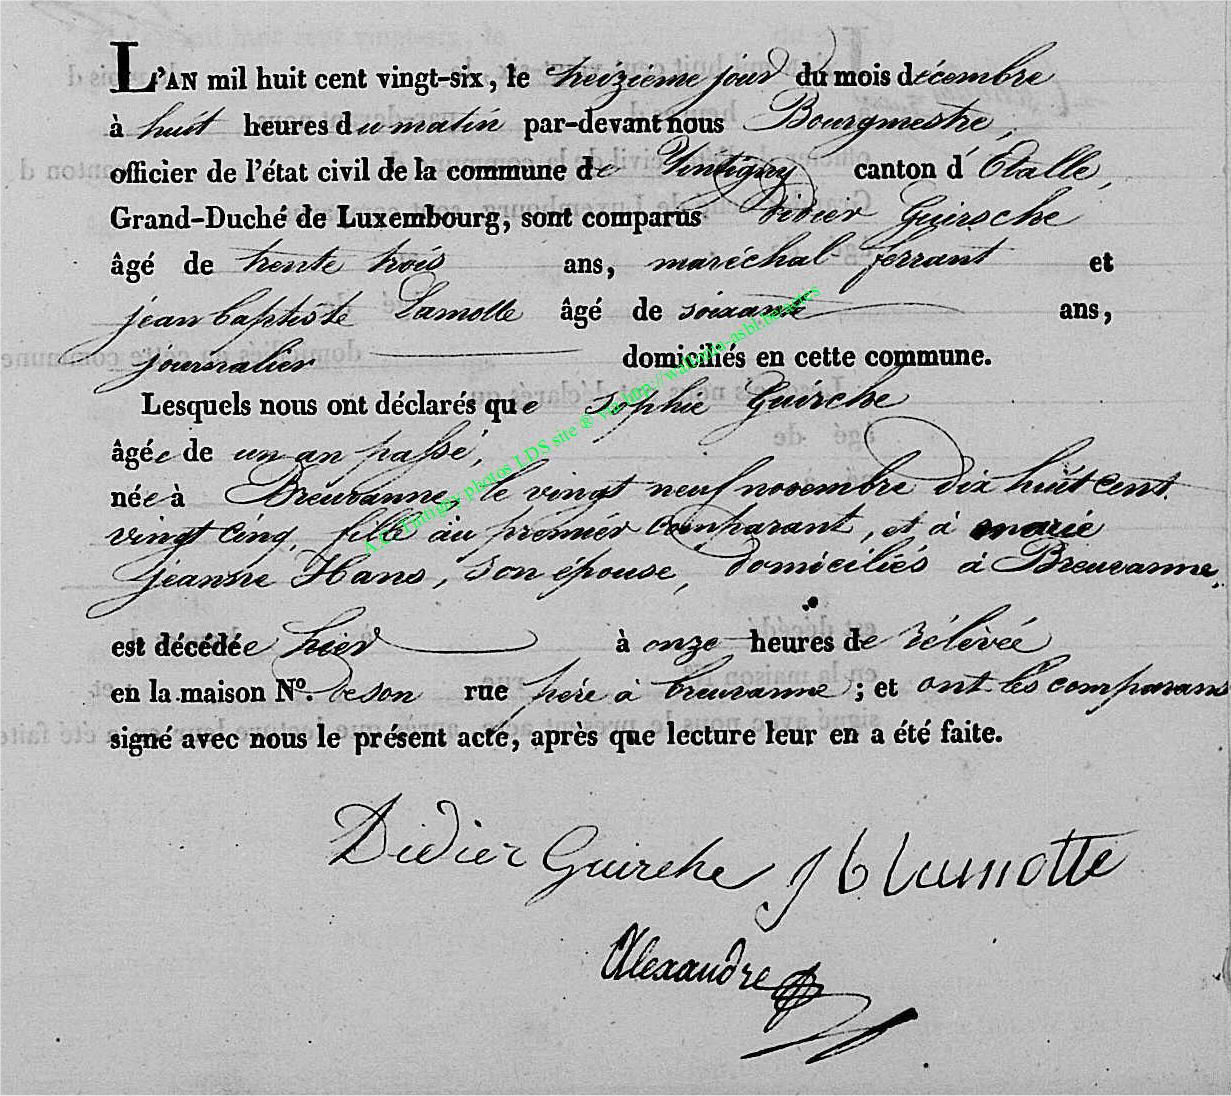 L'AN mil huit cent vingt-six, le treizieme jour du mois décembre
à huit heures du matin par-devant nous Bourgmestre,
officier de l'état civil de la commune de Tintigny canton d'Etalle,
Grand-Duché de Luxembourg, sont comparus Didier Guirsche
âgé de trente trois ans, maréchal ferrant et
jean baptiste Lamotte âgé de soixante ans,
journalier domiciliés en cette commune.
Lesquels nous ont déclarés que Sophie Guirche
âgée de un an passé,
née à Breuvanne, le vingt neuf novembre dix huit cent
vingt cinq, fille au premier comparant, et à marie
jeanne Hans, son épouse, domiciliés à Breuvanne,
est décédée hier à onze heures de rélévée
en la maison Nº. de son rue père à breuvanne ; et ont les comparans
signé avec nous le présent acte, après que lecture leur en a été faite.
Didier Guirche J b Lamotte
Alexandre